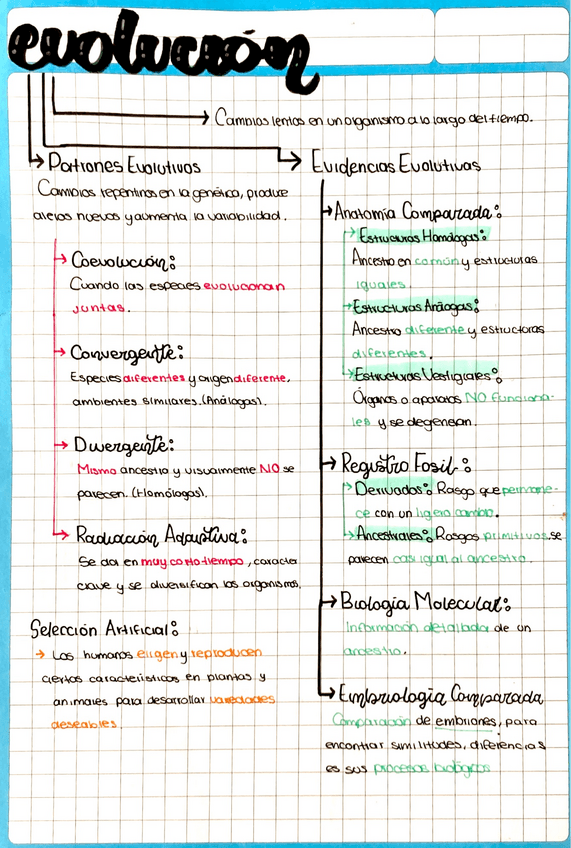 evolución
Cambios lentos en un organismo a lo largo del tiempo.
Patrones Evolutivos
Cambios repentinos en la genética, produce
alelos nuevos y aumenta la variabilidad.
Coevolución:
Cuando las especies evolucionan
juntas.
Convergente:
Especies diferentes y origen diferente,
ambientes similares. (Análogas).
Divergente:
Mismo ancestro y visualmente NO se
parecen. (Homólogas).
Radiación Adaptiva:
Se da en muy corto tiempo, caracter
clave y se diversifican los organismos.
Selección Artificial:
Los humanos eligen y reproducen
ciertas características en plantas y
animales para desarrollar variedades
deseables.
Evidencias Evolutivas
Anatomía Comparada:
Estructuras Homólogas:
Ancestro en común y estructuras
iguales.
Estructuras Análogas:
Ancestro diferente y estructuras
diferentes.
Estructuras Vestigiales:
Órganos o aparatos NO funciona-
les y se degeneran.
Registro Fosil:
Derivados: Rasgo que permane-
ce con un ligero cambio.
Ancestrales: Rasgos primitivos, se
parecen casi igual al ancestro.
Biología Molecular:
Información detallada de un
ancestro.
Embriología Comparada
Comparación de embriones, para
encontrar similitudes, diferencias
es sus procesos biológicos